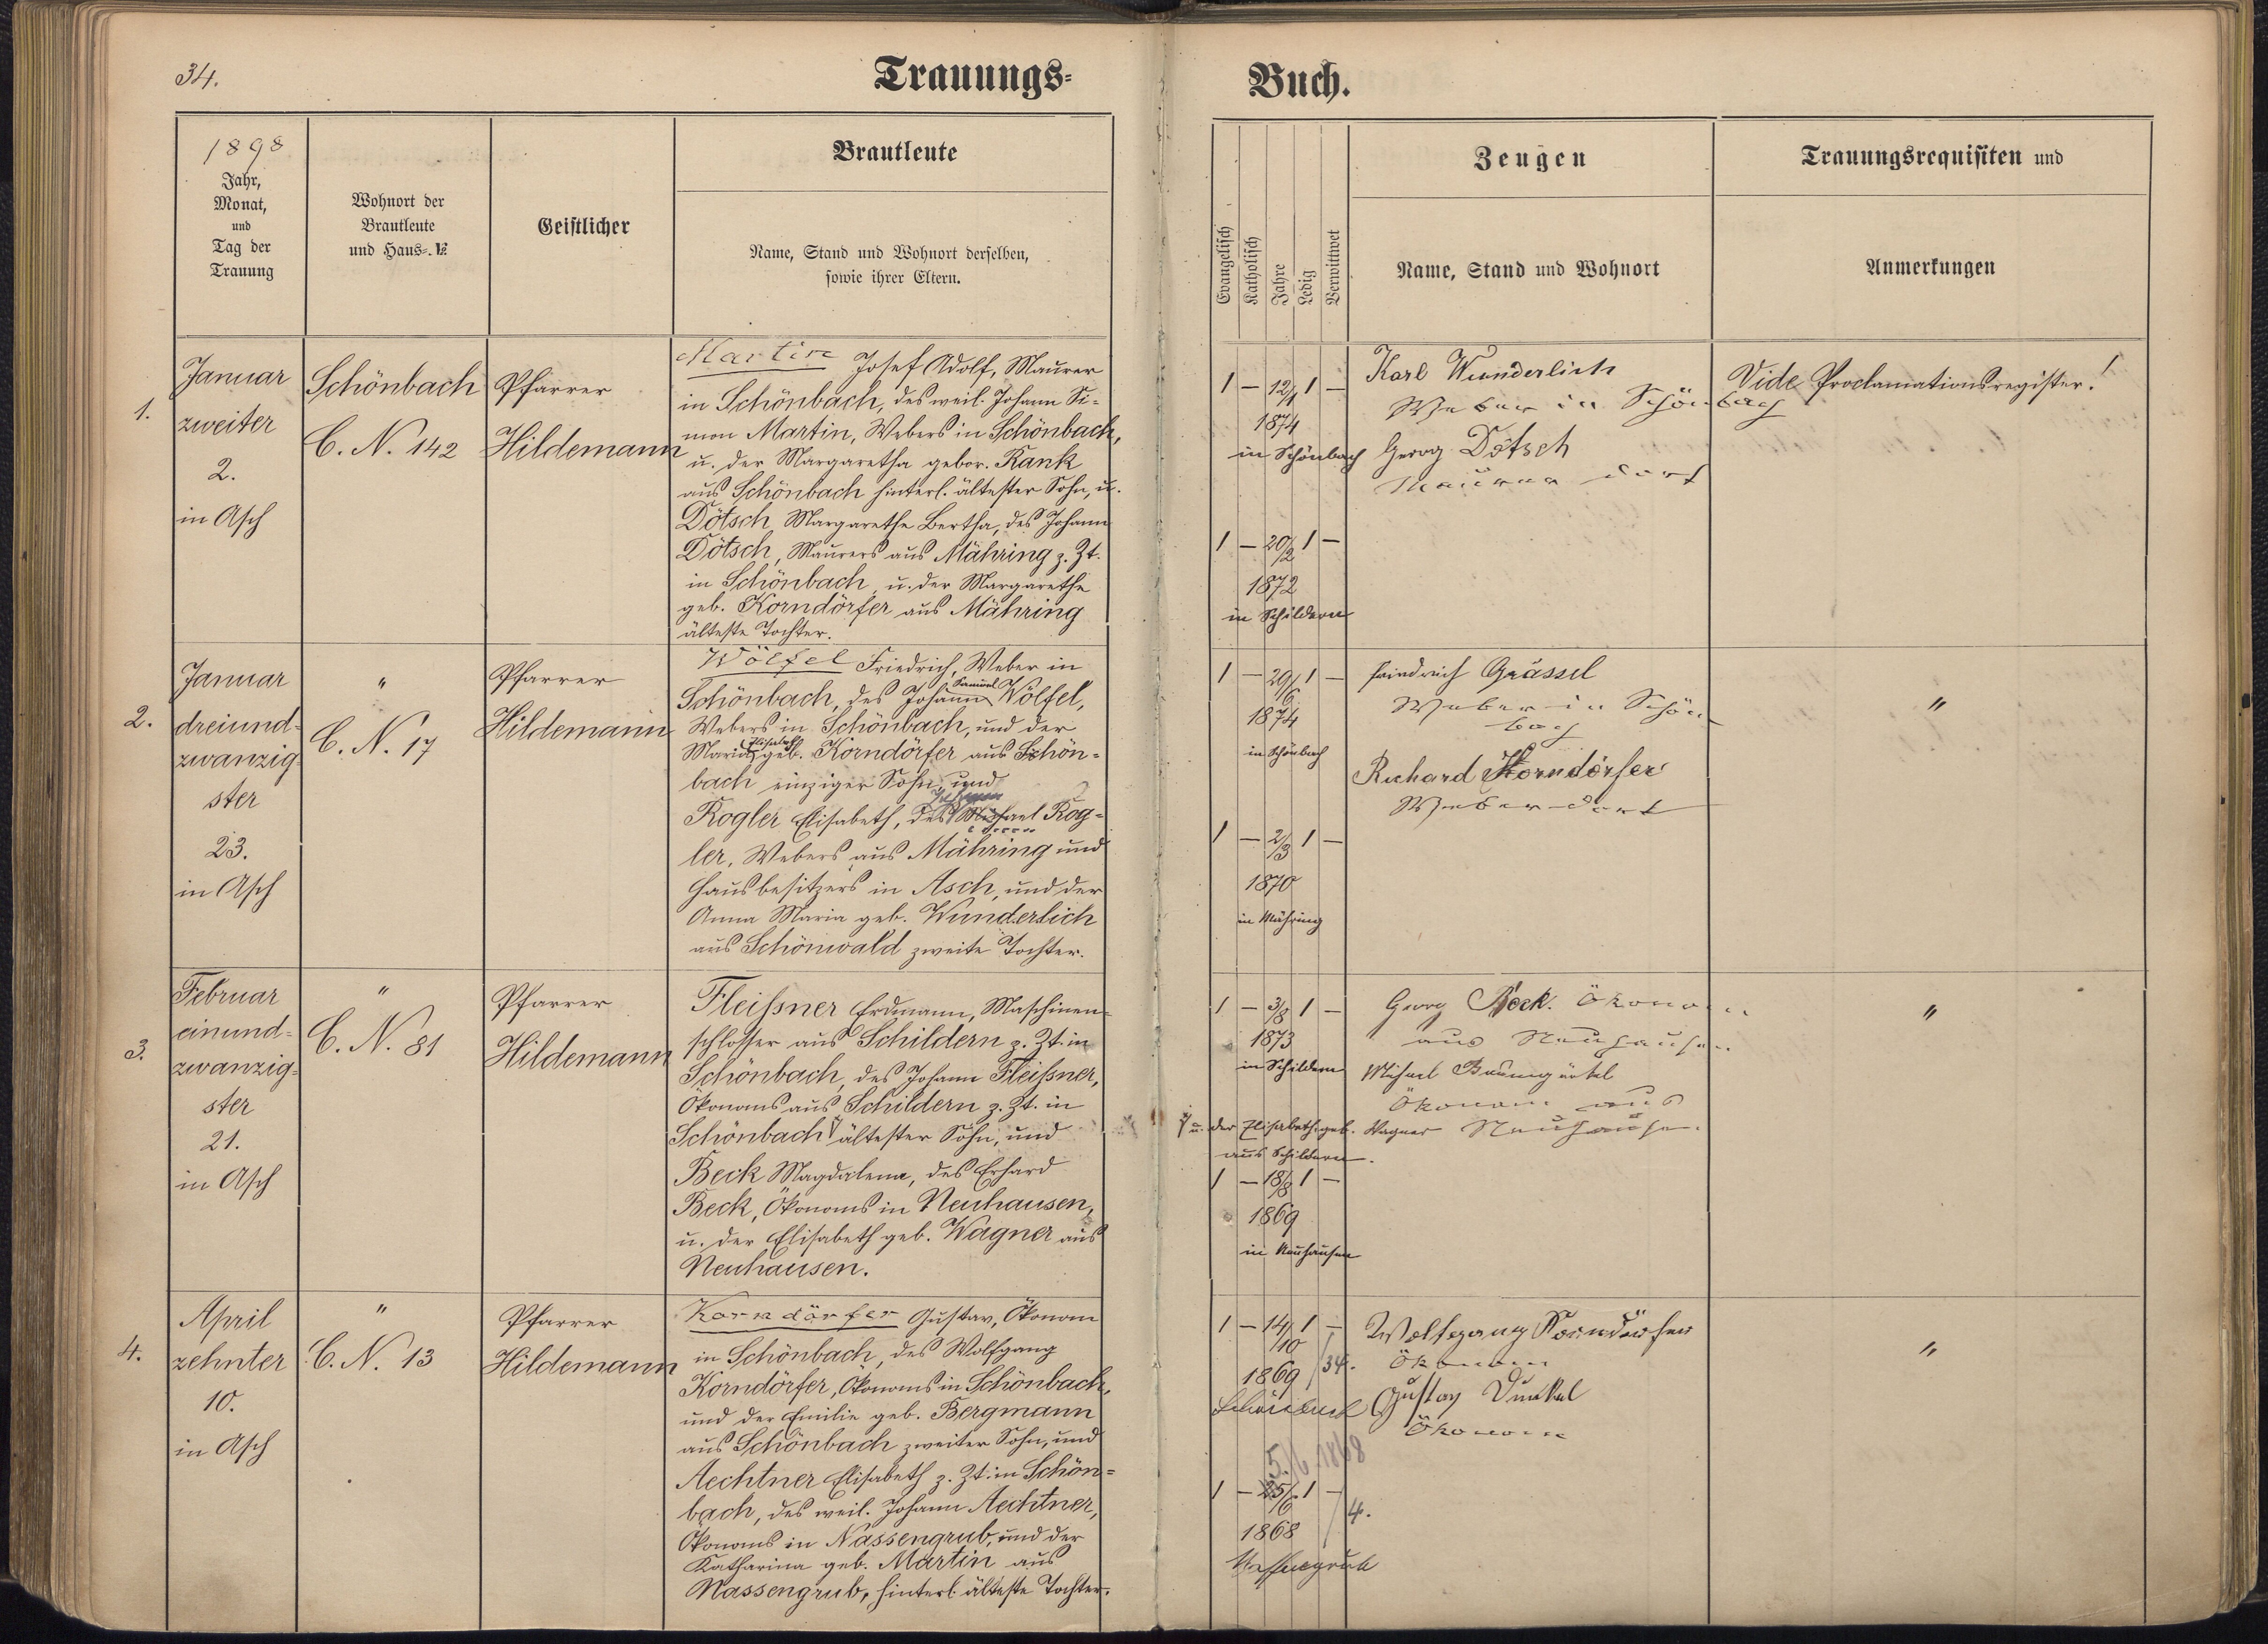 34.
Trauungs-
Buch.
1898
Jahr,
Monat,
und
Tag der
Trauung
Wohnort der
Brautleute
und Haus-№
Geistlicher
Brautleute
Name, Stand und Wohnort derselben,
sowie ihrer Eltern.
Evangelisch
Katholisch
Jahre
Ledig
Verwittwet
Zeugen
Name, Stand und Wohnort
Trauungsrequisiten und
Anmerkungen
1.
Januar
zweiter
2.
in Asch
Schönbach
C. N. 142
Pfarrer
Hildemann
Martin Josef Adolf, Maurer
in Schönbach, des weil. Johann Si-
mon Martin, Webers in Schönbach,
u. der Margaretha gebor. Rank
aus Schönbach hinterl. ältester Sohn, u.
Dötsch, Margarethe Bertha, des Johann
Dötsch, Maurers aus Mähring z. Zt.
in Schönbach, u. der Margarethe
geb. Korndörfer aus Mähring
älteste Tochter.
1 – 12/1 1 –
1874
in Schönbach
1 – 20/2 1 –
1872
in Schildern
Karl Wunderlich
Weber in Schönbach
Georg Dötsch
Maurer dort
Vide Proclamationsregister!
2.
Januar
dreiund-
zwanzig-
ster
23.
in Asch
"
C. N. 17
Pfarrer
Hildemann
Wölfel Friedrich, Weber in
Schönbach, des Johann Samuel Wölfel,
Webers in Schönbach, und der
Maria Elisabeth geb. Korndörfer aus Schön-
bach einziger Sohn, und
Rogler Elisabeth, des Michael Rog-
ler, Webers aus Mähring und
Hausbesitzers in Asch, und der
Anna Maria geb. Wunderlich
aus Schönwald zweite Tochter.
1 – 29/6 1 –
1874
in Schönbach
1 – 2/3 1 –
1870
in Mähring
Friedrich Grässel
Weber in Schön
bach
Richard Korndörfer
Weber dort
"
3.
Februar
einund-
zwanzig-
ster
21.
in Asch
"
C. N. 81
Pfarrer
Hildemann
Fleißner Erdmann, Maschinen-
schlosser aus Schildern z. Zt. in
Schönbach, des Johann Fleißner,
Ökonoms aus Schildern z. Zt. in
Schönbach ältester Sohn, und
Beck Magdalena, des Erhard
Beck, Ökonoms in Neuhausen,
u. der Elisabeth geb. Wagner aus
Neuhausen.
1 – 3/8 1 –
1873
in Schildern
u. der Elisabeth geb. Wagner
aus Schildern.
1 – 18/8 1 –
1869
in Neuhausen
Georg Beck. Ökonom
aus Neuhausen
Michael Baumgärtel
Ökonom aus
Neuhausen.
"
4.
April
zehnter
10.
in Asch
"
C. N. 13
Pfarrer
Hildemann
Korndörfer Gustav, Ökonom
in Schönbach, des Wolfgang
Korndörfer, Ökonoms in Schönbach,
und der Emilie geb. Bergmann
aus Schönbach zweiter Sohn, und
Aechtner Elisabeth z. Zt. in Schön-
bach, des weil. Johann Aechtner,
Ökonoms in Nassengrub, und der
Katharina geb. Martin aus
Nassengrub, hinterl. älteste Tochter.
1 – 14/10 1 –
1869 /34.
Schönbach
5./6 1868
1 – 25/6 1 –
1868 /4.
Nassengrub
Wolfgang Korndörfer
Ökonom
Gustav Dunkel
Ökonom
"